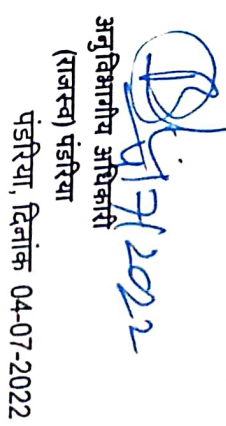 4/7/2022
अनुविभागीय अधिकारी
(राजस्व) पंडरिया
पंडरिया, दिनांक 04-07-2022